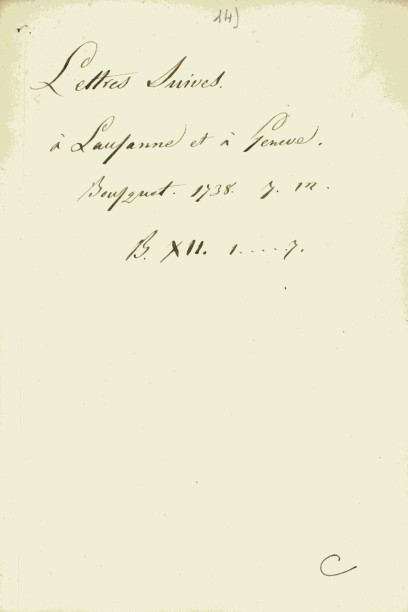 14)
Lettres Suives.
à Lausanne et à Geneve.
Bousquet. 1738. 7. in.
B. XII. 1.....7.
C